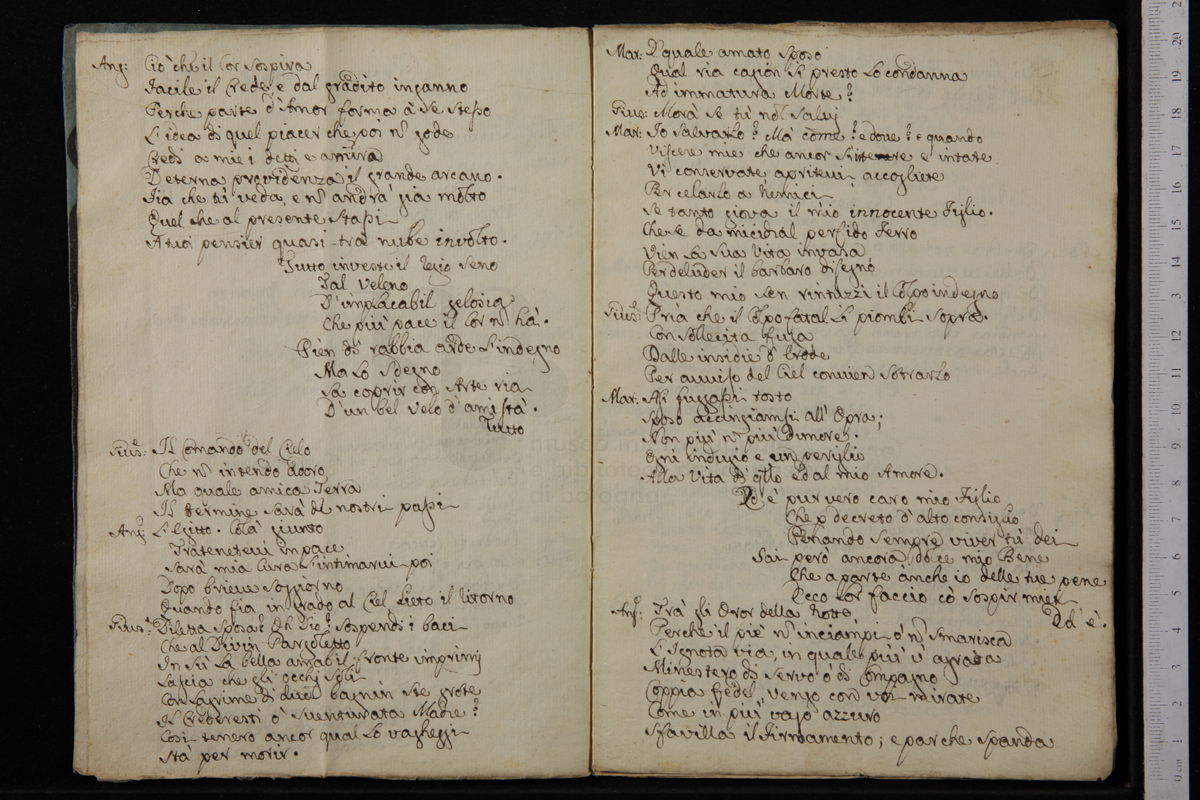 Ang: Ciò che il Cor sospira
Facile il Crede, e dal gradito inganno
Perche parte d'Amor forma à se stesso
L'idea di quel piacer che poi nõ gode
Credi a miei detti e amira
D'eterna providenza il grande arcano.
Fia che tù veda, e nõ andrà già molto
Quel che al presente stassi
A tuoi pensier quasi trà nube involto.
Tutto investe il Regio seno
Tal veleno
D'implacabil gelosia
Che più pace il Cor nõ hà.
Pien di rabbia arde l'indegno
Ma lo sdegno
Sà coprir con Arte ria
D'un bel velo d'amistà.
Tutto
Gius: Il Comando del Cielo
Che nõ intendo adoro
Ma quale amica Terra
Il termine sarà de nostri passi
Ang: L'Egitto. Colà giunto
Tratenetevi in pace
Sarà mia Cura l'intimarvi poi
Dopo brieve soggiorno
Quando fia in grado al Ciel lieto il ritorno
Gius: Diletta sposa? Oh Dio? sospendi i baci
Che al Divin Pargoletto
In sù la bella amabil fronte imprimi
Lascia che gli occhi soli
Con lagrime di duol bagnin ste grote
Il Crederesti ò sventurata Madre?
Cosi tenero ancor qual lo vagheggi
Stà per morir.
Mar: E quale amato sposo
Qual ria cagion si presto lo condanna
Ad immatura Morte?
Gius: Morà se tù nol salvi
Mar: Io salvarlo? Mà come? e dove? e quando
Viscere mie che ancor e intate
Vi conservate apritevi accogliete
Per celarlo a nemici
Se tanto giova il mio innocente Figlio.
Che se da micidial perfido Ferro
Vien la sua Vita invasa
Per deluder il barbaro disegno
Questo mio sen rintuzzi il Colpo indegno
Gius: Pria che il Colpo fatal li piombi sopra.
Con sollecita fuga
Dalle insidie d'Erode
Per avviso del Ciel convien sotrarlo
Mar: Ah fuggasi tosto
Sposo accingiamsi all'Opra;
Non più nõ più Dimore.
Ogni indugio è un periglio
Alla Vita di q̃llo ed al mio Amore.
Ed è pur vero caro mio Figlio
Che p decreto d'alto consiglio
Penando sempre viver tù dei
Sai però ancora dolce mio Bene
Che a parte anche io delle tue pene
Ecco lor faccio cõ sospir miei
Ed è.
Ang: Trà gli Oror della Notte
Perche il piè nõ inciampi ò nõ smarisca
L'Ignota via, in quale più v'agrada
Ministero di servo ò di Compagno
Coppia fedel, vengo con voi mirate
Come in più vago azzuro
Sfavilla il Firmamento; e par che spanda